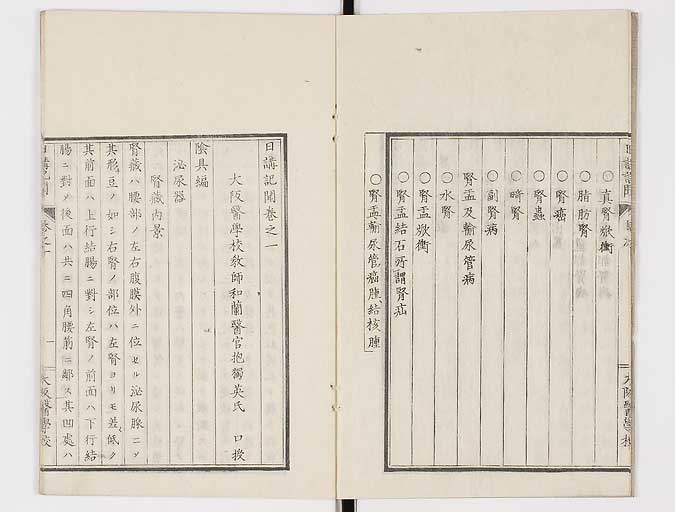 ○真腎焮衝
○脂肪腎
○腎癌
○腎蟲
○畸腎
○副腎病
○水腎
腎盂及輸尿管病
○腎盂焮衝
○腎盂結石所謂腎疝
○腎盂輸尿管癌腫結核腫
日講記聞卷之一
大阪醫學校教師和蘭醫官抱獨英氏 口授
陰具編
泌尿器
腎藏内景
腎藏ハ腰部ノ左右腹膜外ニ位セル泌尿腺ニソ
其形豆ノ如シ右腎ノ部位ハ左腎ヨリモ差低ク
其前面ハ上行結腸ニ對シ左腎ノ前面ハ下行結
腸ニ對ス後面ハ共ニ四角腰筋ニ鄰ス其凹處ハ
日講記聞
大阪醫學校